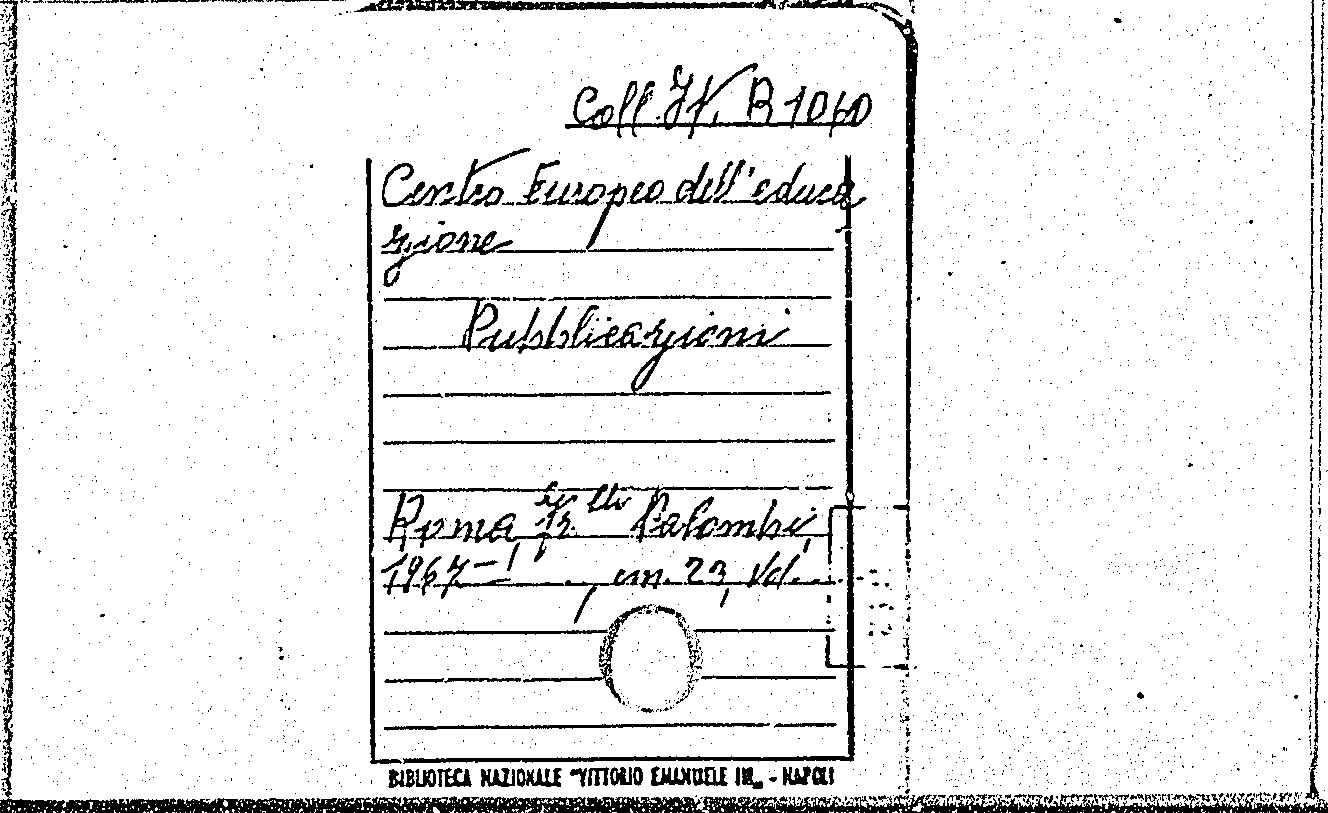 Coll. It. B 1060
Centro Europeo dell'educa
zione
Pubblicazioni
Roma, F.lli Palombi,
1967-, cm. 23, Vol.
BIBLIOTECA NAZIONALE "VITTORIO EMANUELE III„ - NAPOLI